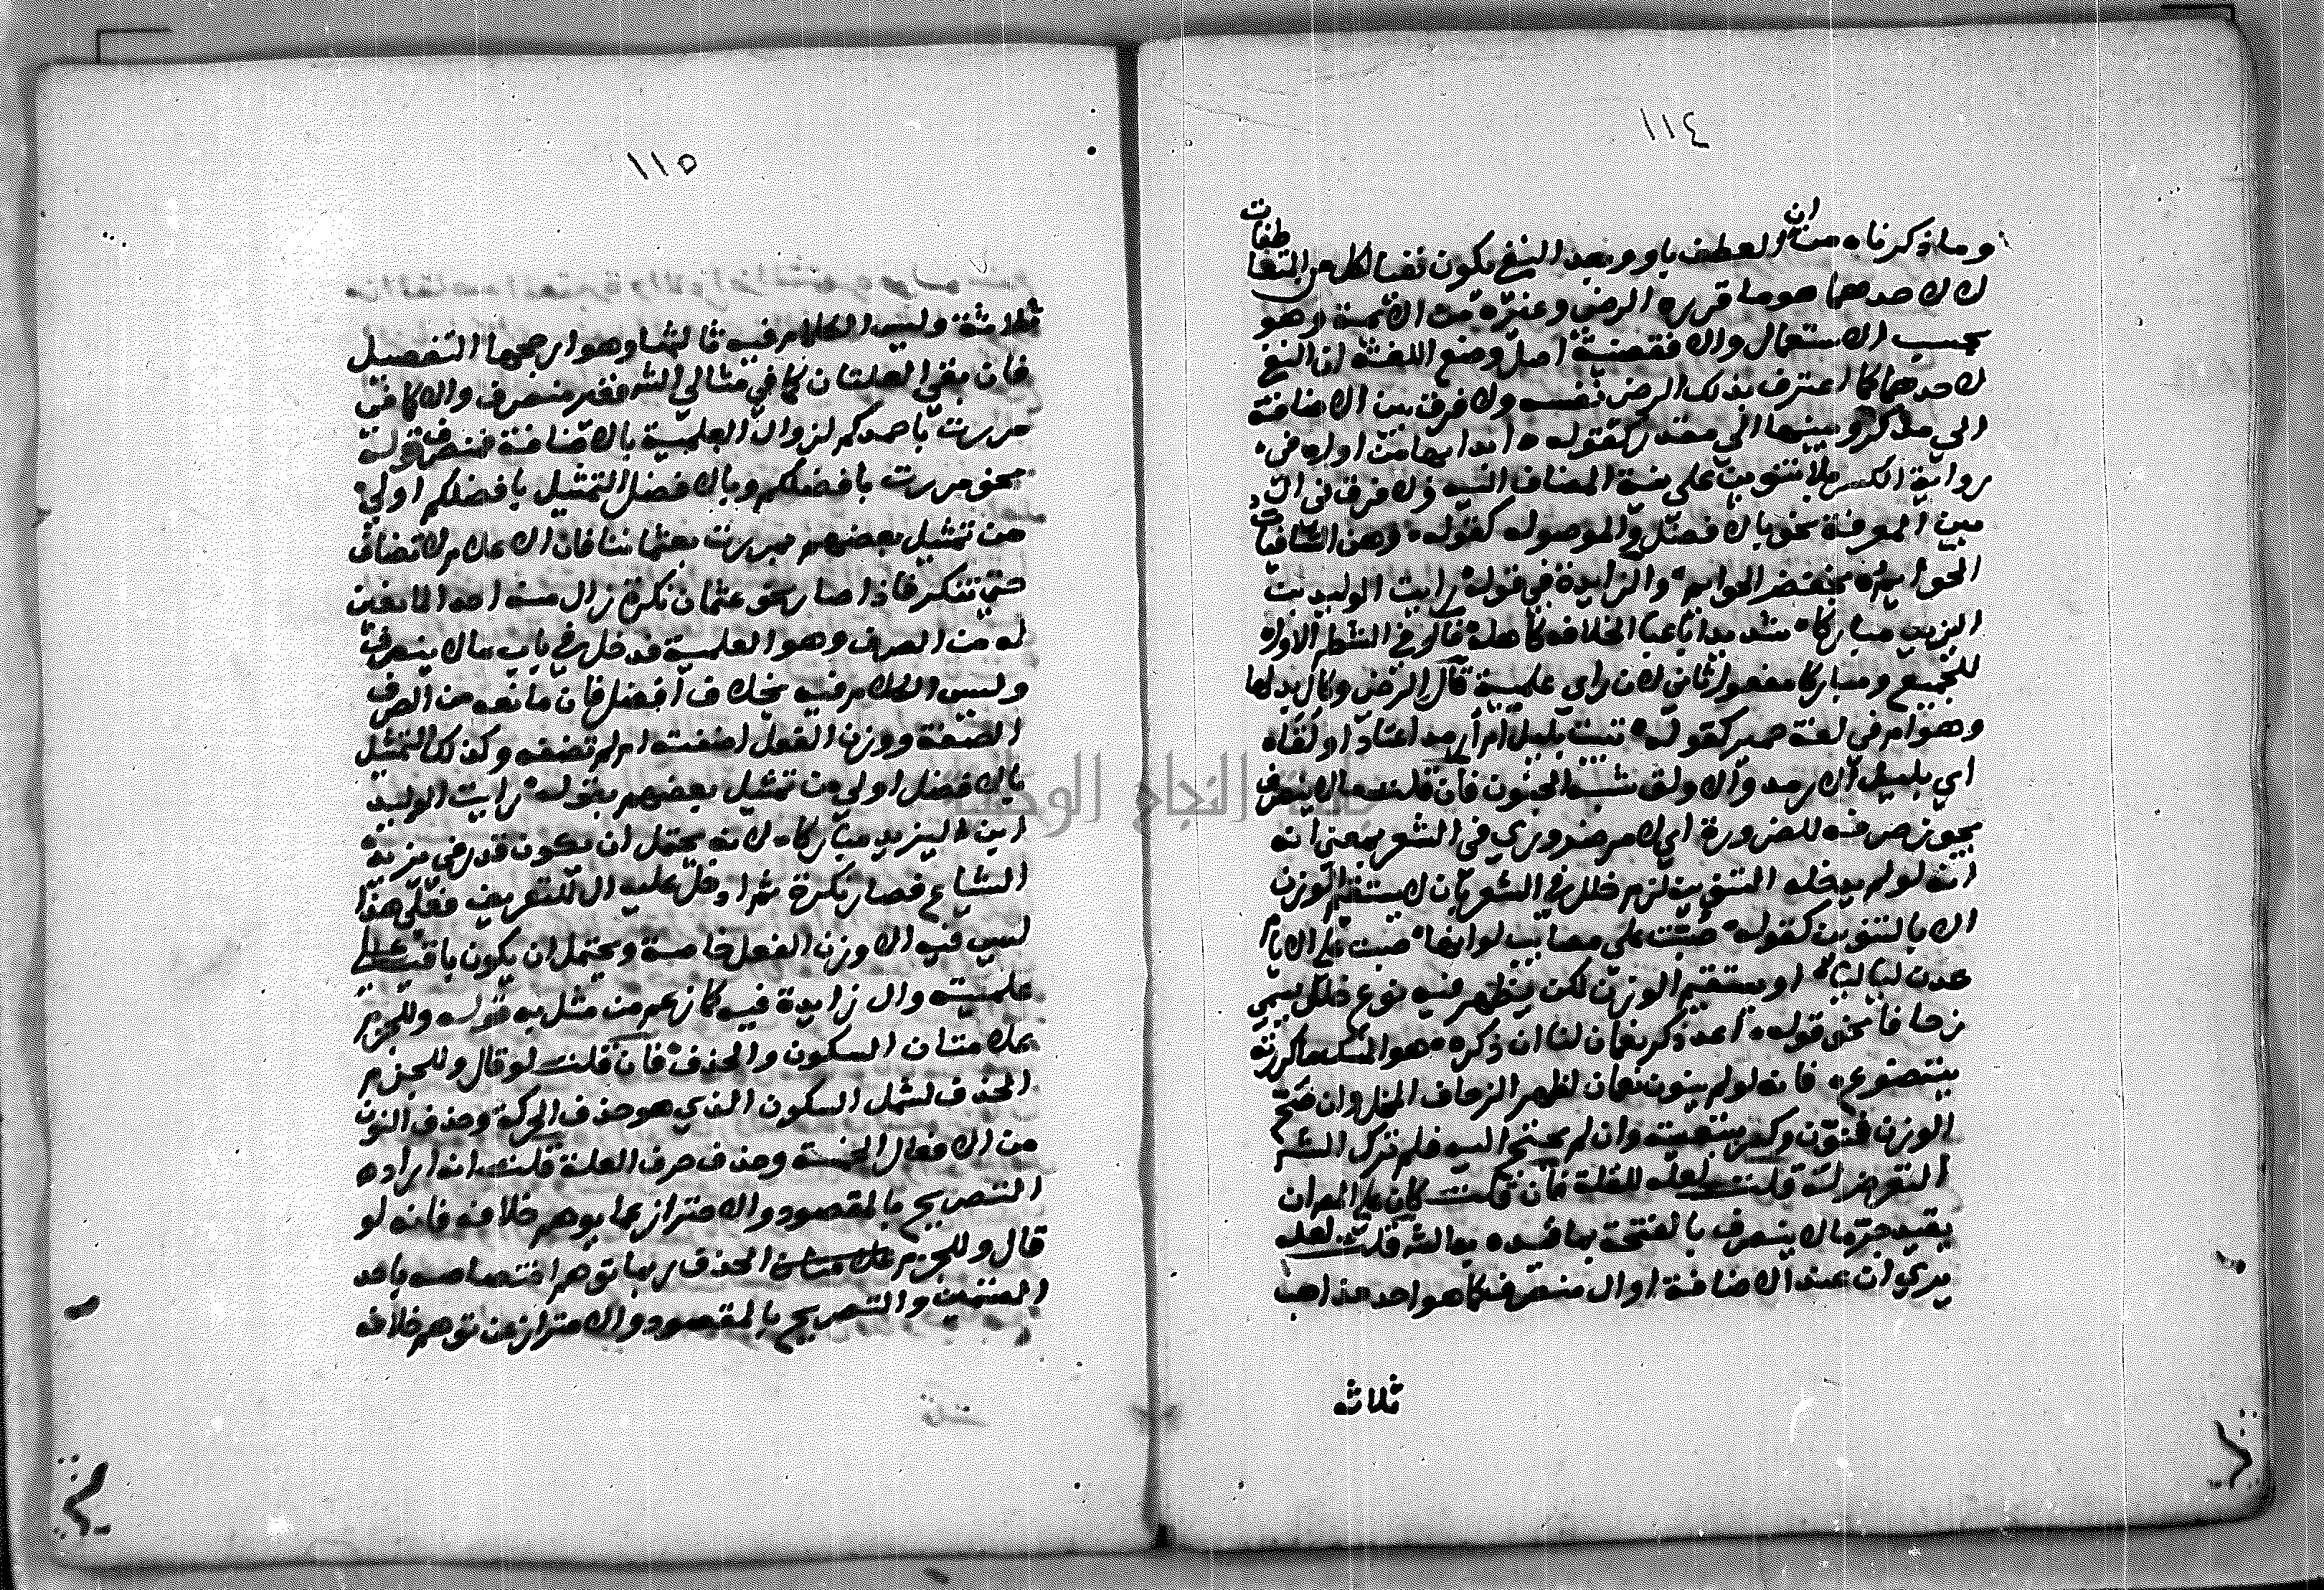 ١١٤
وما ذكرناه من ان العطف باو وبعد النهي يكون نفيا لكل من المتعا
طفات
لا لاحدهما هو ما قرره الرضي وغيره من الائمة وهو
بحسب الاستعمال والا فقضية اصل وضع اللغة ان النهي
لاحدهما كما اعترف بذلك الرضي نفسه ولا فرق بين الاضافة
الى مذكر وبينها الى مقدر كقوله ابدا بها من اول في
رواية الكسر بلا تنوين على نية المضاف اليه ولا فرق في ال
بين المعرفة نحو بالافضل والموصوله كقوله وهن الشافيات
الحوايم والزايدة في قوله رايت الوليد بن
اليزيد مباركا شديدا باعبا الخلافه كاهله فال في الشطر الاول
للجميع ومباركا مفعول ثاني لان راي علمية قال الرضي وكال بدلها
وهو ام في لغة حمير كقوله تبت بليل ام ارمد اعتاد اولقاه
اي بليل الارمد والاولق شبه الجنون فان قلت مالا ينصرف
يجوز صرفه للضرورة اي لامر ضروري في الشعر بمعنى انه
انه لو لم يدخله التنوين لزم خلل في الشعر بان لا يستقيم الوزن
الا بالتنوين كقوله صبت علي مصايب لو انها صبت على الايام
عدن لياليا او يستقيم الوزن لكن يظهر فيه نوع خلل يسمى
زحافا نحو قوله اعد ذكر نعمان لنا ان ذكره هو المسك ما كررته
يتضوع فانه لو لم ينون نعمان لظهر الزحاف المخل وان صح
الوزن فنون وكسر بتبعيته وان لم يحتج اليه فلم ترك الش
التعرض له قلت لعله للقلة فان قلت كان على المع ان
يقيد جر مالا ينصرف بالفتحة بما قيده به الش قلت لعله
يري ان عند الاضافة او ال منصرف كما هو احد مذاهب
ثلاثه
١١٥
ثلاثة وليس الكلام فيه ثالثها وهو ارجحها التفصيل
فان بقي العلتان كما في مثالي الش فغير منصرف والا كما في
مررت باحمدكم لزوال العلمية بالاضافة فمنصرف قوله
نحو مررت بافضلكم وبالافضل التمثيل بافضلكم اولى
من تمثيل بعضهم بمررت بعثماننا فان الاعلام لا تضاف
حتى تنكر فاذا صار نحو عثمان نكرة زال منه احد المانعين
له من الصرف وهو العلمية فدخل في باب مالا ينصرف
وليس الكلام فيه بخلاف افضل فان مانعه من الصرف
الصفة ووزن الفعل اضفته ام لم تضفه وكذلك التمثيل
بالافضل اولى من تمثيل بعضهم بقوله رايت الوليد
ابن اليزيد مباركا لانه يحتمل ان يكون قدر في يزيد
الشياع فصار نكرة ثم ادخل عليه ال للتعريف فعلى هذا
ليس فيه الا وزن الفعل خاصة ويحتمل ان يكون باقيا على
علميته وال زايدة فيه كما زعم من مثل به قوله وللجزم
علامتان السكون والحذف فان قلت لو قال وللجزم
الحذف لشمل السكون الذي هو حذف الحركة وحذف النون
من الافعال الخمسة وحذف حرف العلة قلت انه اراد
التصريح بالمقصود والاحتراز عما يوهم خلافه فانه لو
قال وللجزم علامتان الحذف ربما توهم اختصاصه باحد
القسمين والتصريح بالمقصود والاحتراز عن توهم خلافه